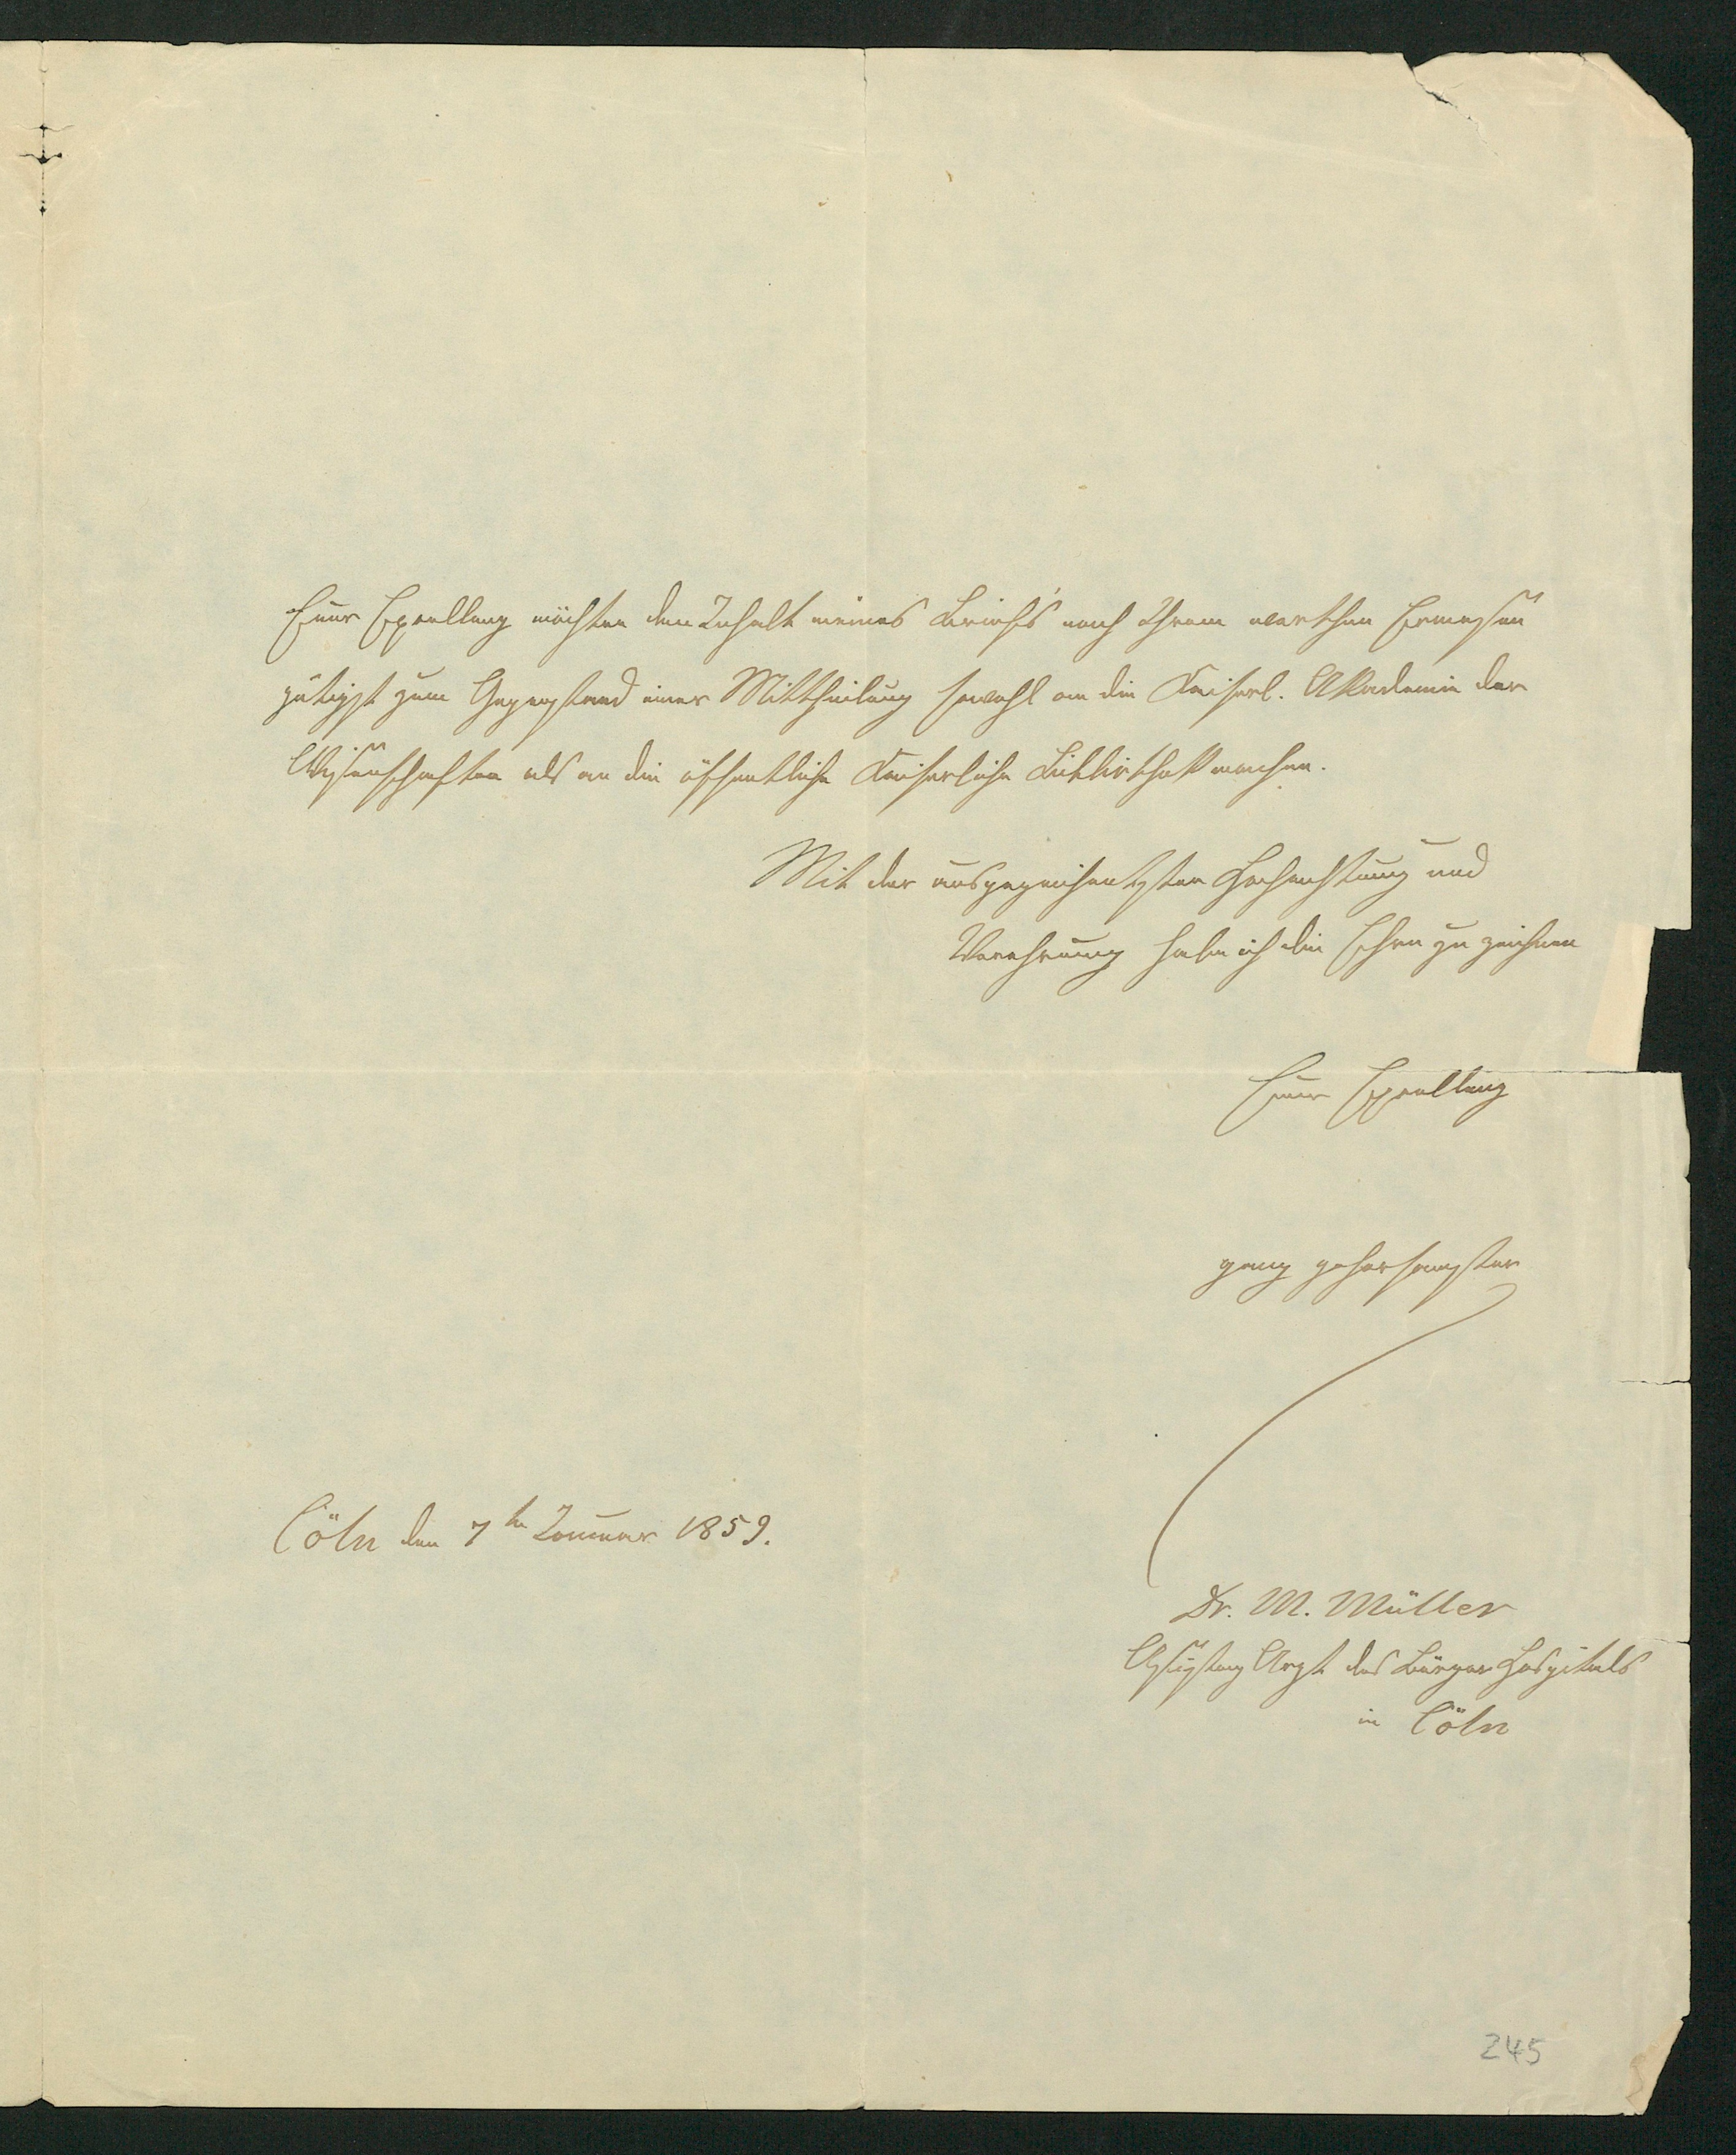 Euer Excellenz möchten den Inhalt meines Briefs nach Ihrem werthen Ermessen
gütigst zum Gegenstand einer Mittheilung sowohl an die Kaiserl. Akademie der
Wissenschaften als an die öffentliche Kaiserliche Bibliothek machen.
Mit der ausgezeichnetsten Hochachtung und
Verehrung habe ich die Ehre zu zeichnen
Euer Excellenz
ganz gehorsamster
Cöln den 7ten Januar 1859.
Dr. M. Müller
Assistenz Arzt des Bürger Hospitals
in Cöln
245